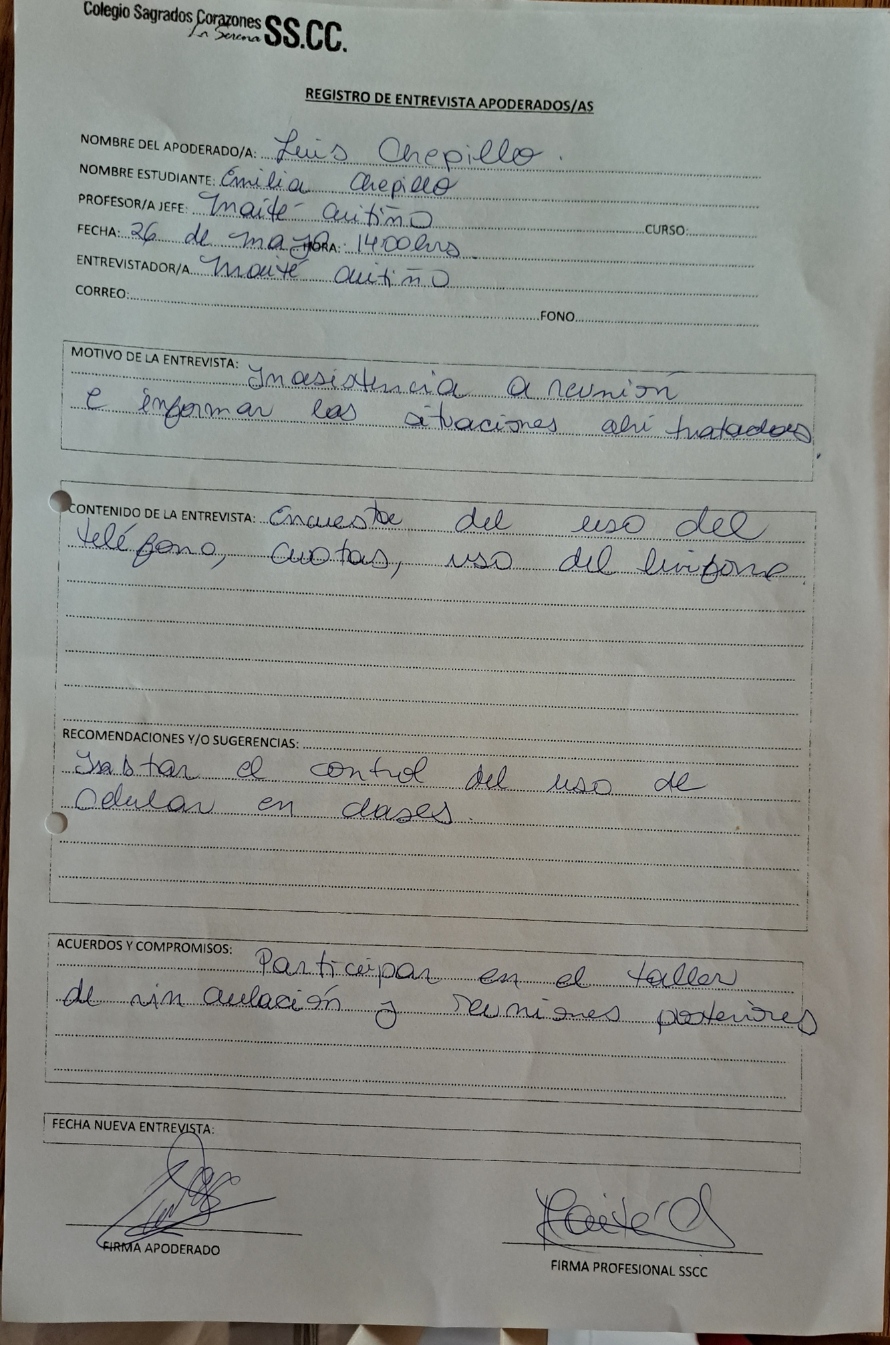 Colegio Sagrados Corazones SS.CC.
La Serena
REGISTRO DE ENTREVISTA APODERADOS/AS
NOMBRE DEL APODERADO/A: Luis Chepillo.
NOMBRE ESTUDIANTE: Emilia Chepillo
PROFESOR/A JEFE: Maité Cuitiño CURSO:
FECHA: 26 de mayo HORA: 1400hrs.
ENTREVISTADOR/A Maité Cuitiño
CORREO: FONO
MOTIVO DE LA ENTREVISTA: Inasistencia a reunión
e informar las situaciones ahí tratadas.
CONTENIDO DE LA ENTREVISTA: Encuesta del uso del
teléfono, cuotas, uso del uniforme.
RECOMENDACIONES Y/O SUGERENCIAS:
el control del uso de
celular en clases.
ACUERDOS Y COMPROMISOS: Participar en el taller
de vinculación y reuniones posteriores
FECHA NUEVA ENTREVISTA:
FIRMA APODERADO
FIRMA PROFESIONAL SSCC